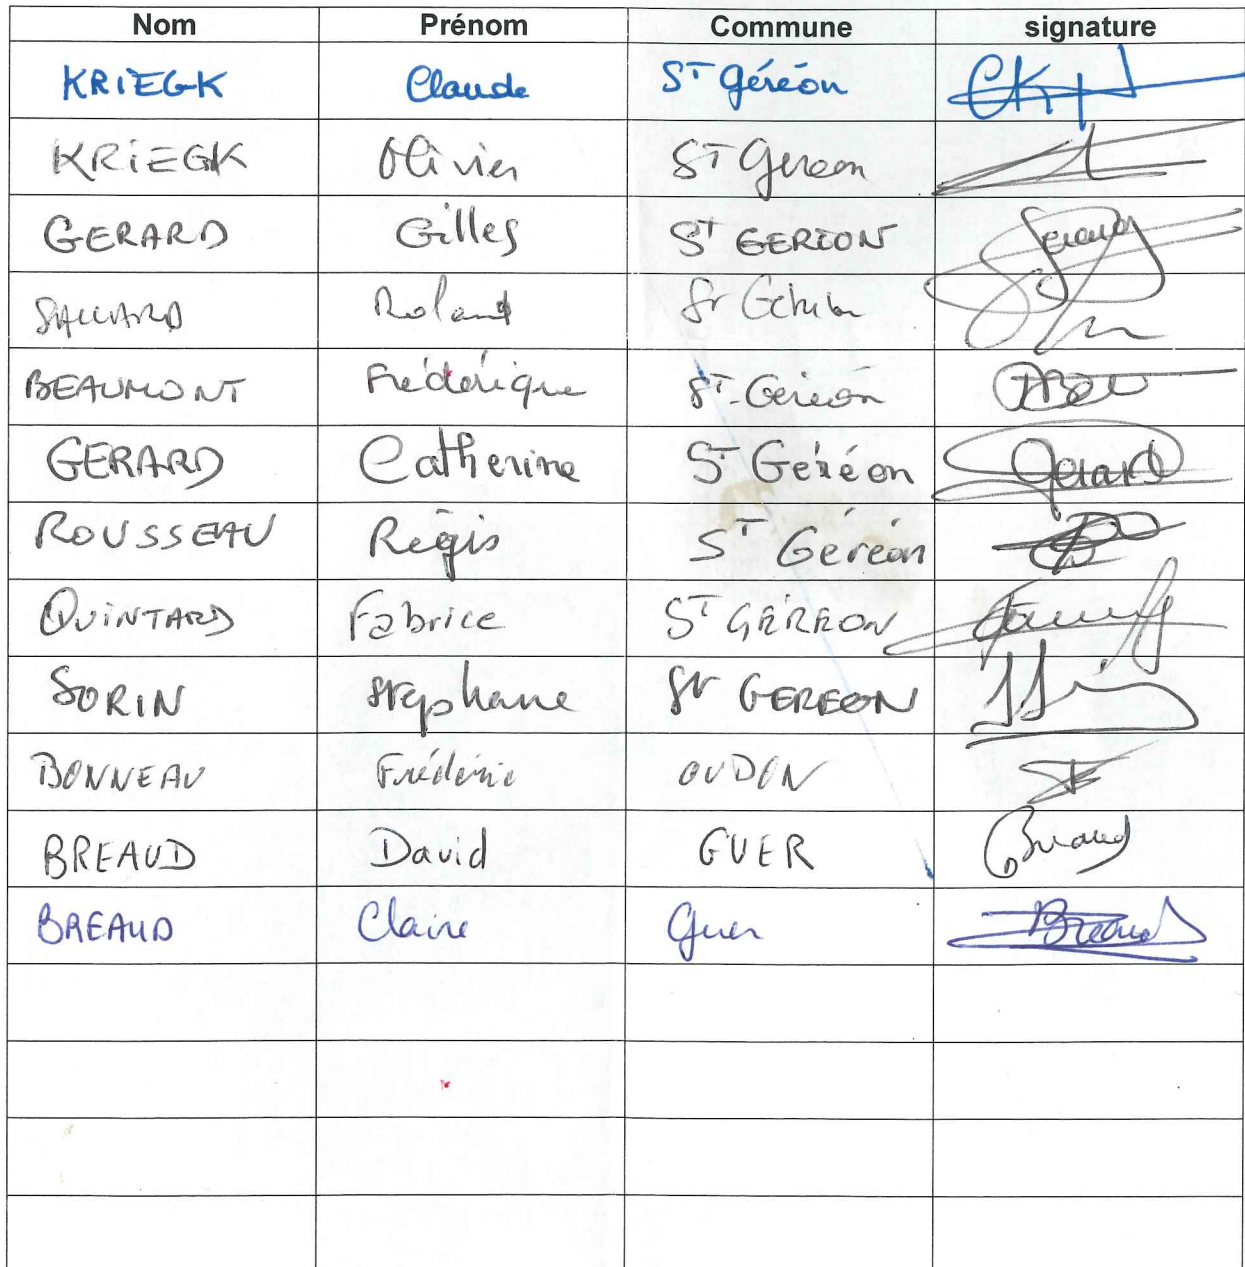 Nom Prénom Commune signature
KRIEGK Claude St Géréon
KRIEGK Olivier St Gereon
GERARD Gilles St GEREON Gerard
Roland St
BEAUMONT Frédérique St-Géréon
GERARD Catherine St Géréon Gerard
ROUSSEAU Régis St Géréon
QUINTARD Fabrice St GÉRÉON
SORIN Stephane St GEREON
BONNEAU Frédéric OUDON
BREAUD David GUER Breaud
BREAUD Claire Guer Breaud